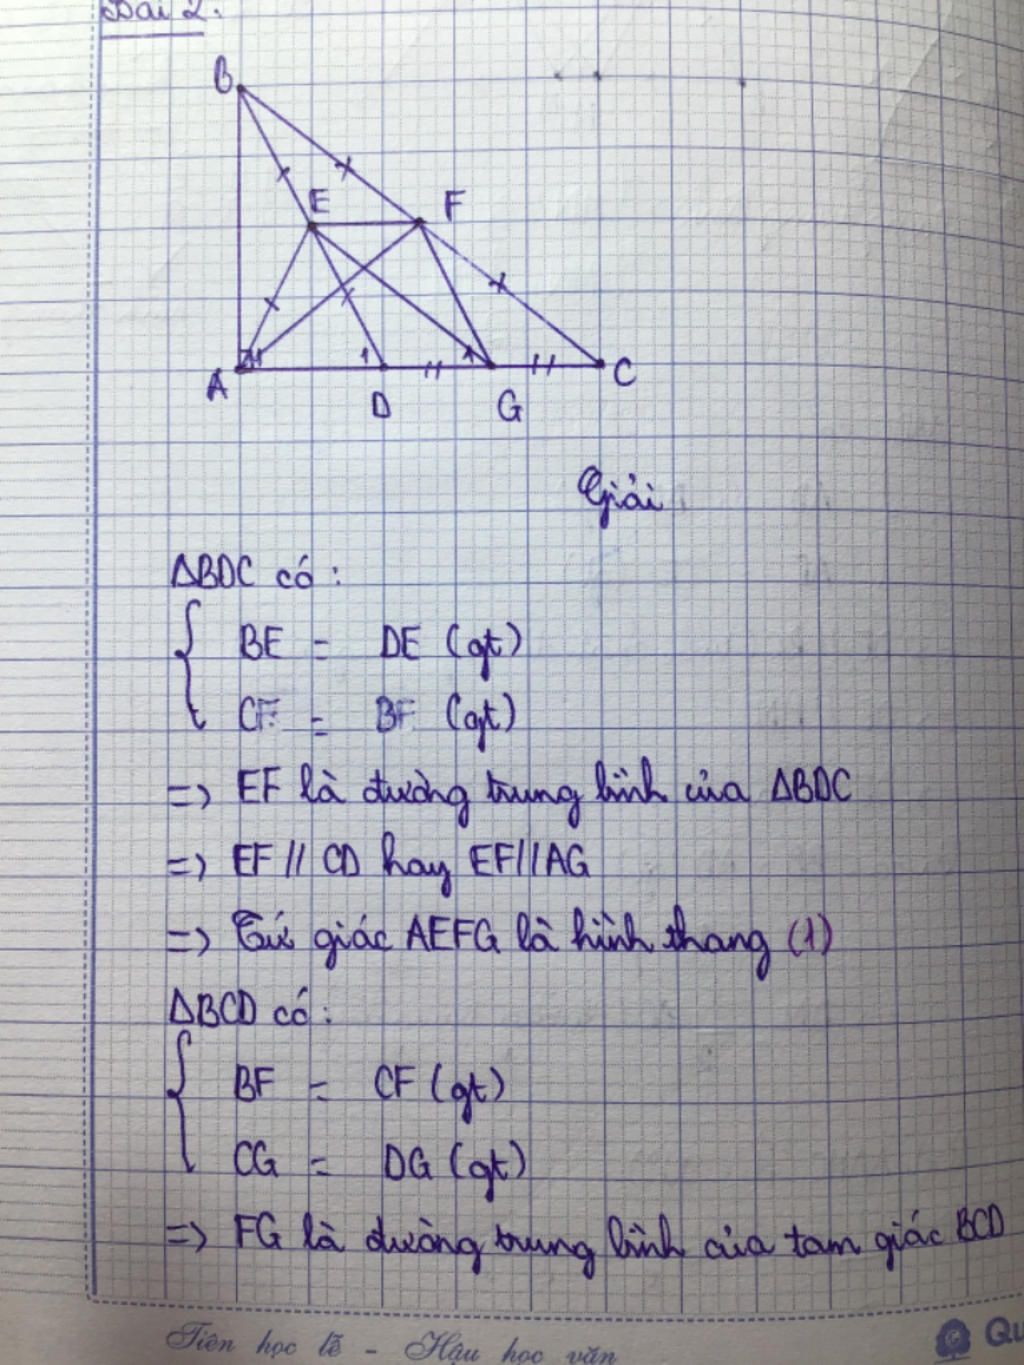 Bài 2.
B
E
F
A
1
1
D
G
C
Giải
ΔBDC có:
BE = DE (gt)
CF = BF (gt)
=> EF là đường trung bình của ΔBDC
=> EF // CD hay EF // AG
=> Tứ giác AEFG là hình thang (1)
ΔBCD có:
BF = CF (gt)
CG = DG (gt)
=> FG là đường trung bình của tam giác BCD
Tiên học lễ - Hậu học văn
Qu